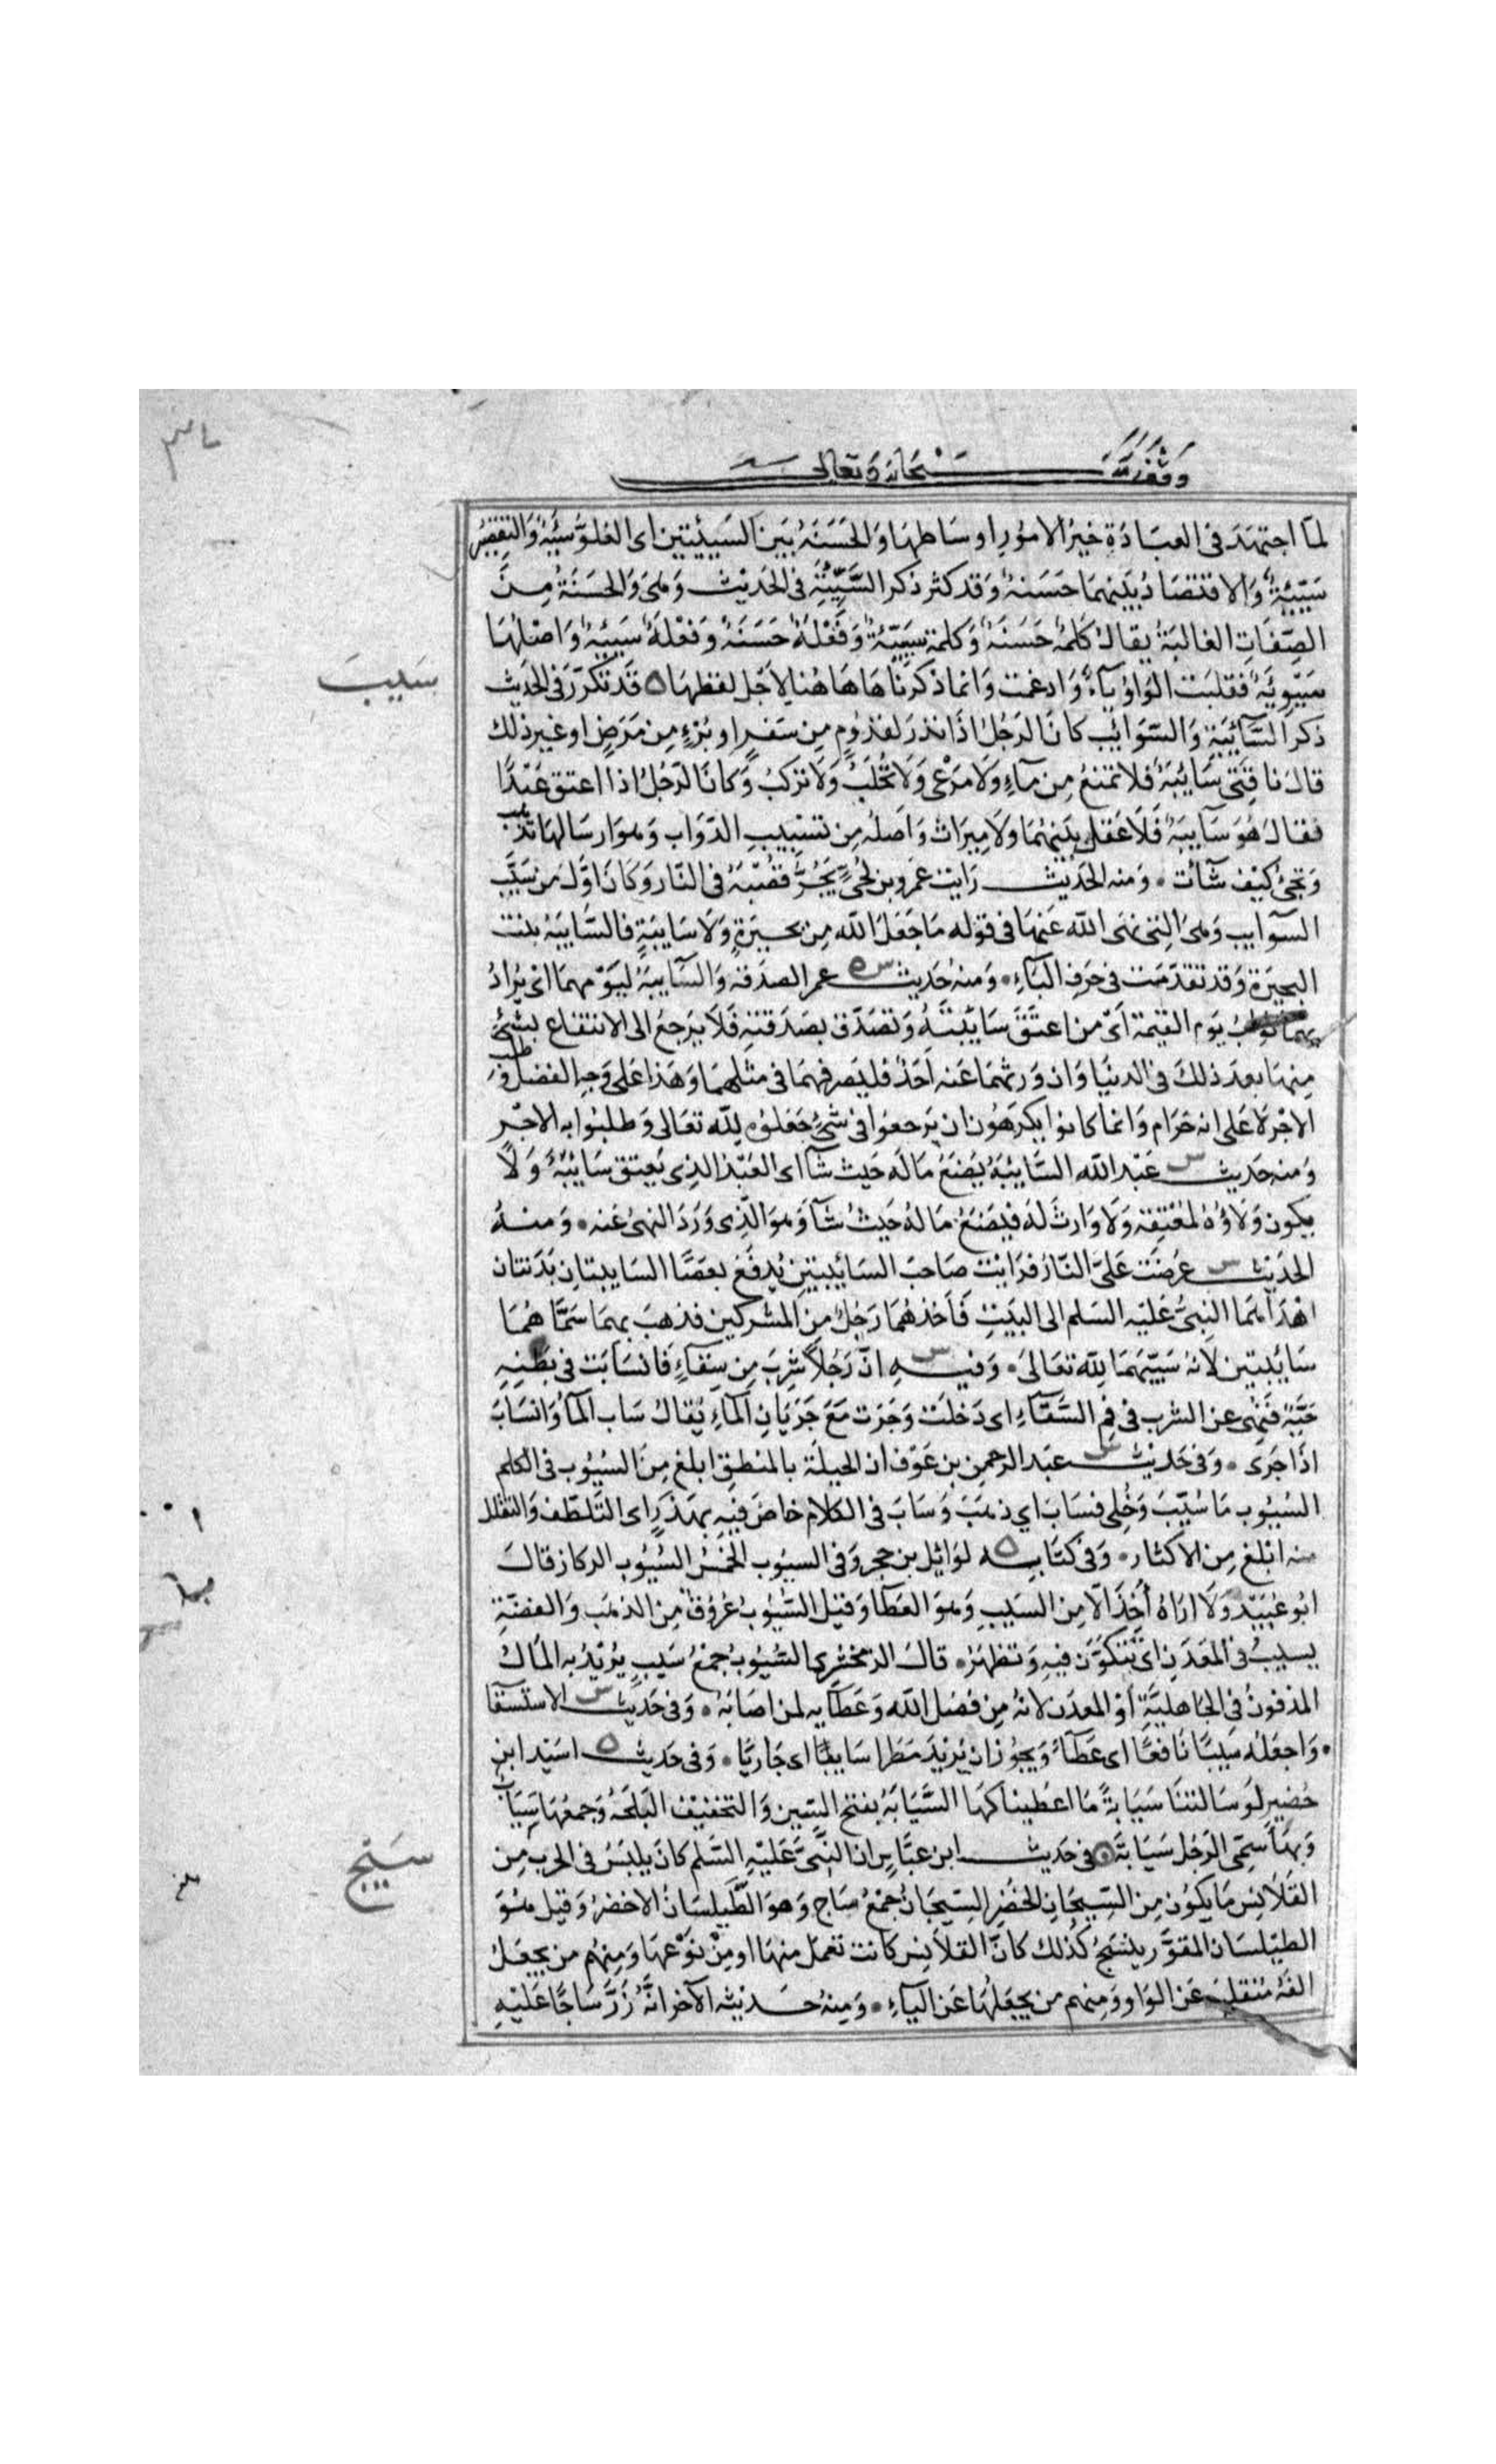 وقف لله سبحانه وتعالى
لما اجتهد في العبادة خير الامور اوساطها والحسنة بين السيئتين اى الغلو سيئة والتقصير
سيئة والاقتصاد بينهما حسنة وقد كثر ذكر السيئة في الحديث وهى والحسنة من
الصفات الغالبة يقال كلمة حسنة وكلمة سيئة وفعلة حسنة وفعلة سيئة واصلها
سيوئة فقلبت الواو ياء وادغمت وانما ذكرناها هاهنا لاجل لفظها ه قد تكرر في الحديث
سيب
ذكر السائبة والسوائب كان الرجل اذا نذر لقدوم من سفر او برء من مرض او غير ذلك
قال ناقتى سائبة فلا تمنع من ماء ولا مرعى ولا تحلب ولا تركب وكان الرجل اذا اعتق عبدا
فقال هو سائبة فلا عقل بينهما ولا ميراث واصله من تسييب الدواب وهو ارسالها تذهب
وتجئ كيف شآت ۰ ومنه الحديث رايت عمرو بن لحى يجر قصبه في النار وكان اول من سيب
السوايب وهى التى نهى الله عنها في قوله ما جعل الله من بحيرة ولا سايبة فالسايبة بنت
البحيرة وقد تقدمت في حرف الباء ۰ ومنه حديث س ه عمر الصدقة والسايبة ليومهما اى يراد
بهما ثواب يوم القيمة اى من اعتق سائبته وتصدق بصدقته فلا يرجع الى الانتفاع بشئ
منها بعد ذلك في الدنيا وان ورثهما عنه احد فليصرفهما في مثلهما وهذا على وجه الفضل وطلب
الاجر لا على انه حرام وانما كانوا يكرهون ان يرجعوا في شئ جعلوه لله تعالى وطلبوا به الاجر
ومنه حديث س عبد الله السائبة يضع ماله حيث شآ اى العبد الذى يعتق سائبة ولا
يكون ولاؤه لمعتقه ولا وارث له فيضع ماله حيث شآ وهو الذى ورد النهى عنه ۰ ومنه
الحديث س عرضت على النار فرايت صاحب السائبتين يدفع بعصا السايبتان بدنتان
اهداهما النبى عليه السلم الى البيت فاخذهما رجل من المشركين فذهب بهما سماهما
سائبتين لانه سيبهما لله تعالى ۰ وفيه س ان رجلا شرب من سقاء فانسابت في بطنه
حية فنهى عن الشرب في فم السقاء اى دخلت وجرت مع جريان الماء يقال ساب الماء وانساب
اذا جرى ۰ وفي حديث س عبد الرحمن بن عوف ان الحيلة بالمنطق ابلغ من السيوب في الكلم
السيوب ما سيب وخلى فساب اي ذهب وساب في الكلام خاض فيه بهذر اى التلطف والتقلل
منه ابلغ من الاكثار ۰ وفي كتابه ه لوائل بن حجر وفي السيوب الخمس السيوب الركاز قال
ابو عبيد ولا اراه اخذ الا من السيب وهو العطا وقيل السيوب عروق من الذهب والفضة
يسيب في المعدن اى تتكون فيه وتظهر ۰ قال الزمخشرى السيوب جمع سيب يريد به المال
المدفون في الجاهلية او المعدن لانه من فضل الله وعطايه لمن اصابه ۰ وفي حديث س الاستسقا
۰ واجعله سيبا نافعا اى عطاء ويجوز ان يريد مطرا سايبا اى جاريا ۰ وفي حديث ه اسيد ابن
حضير لو سالتنا سيابة ما اعطيناكها السيابة بفتح السين والتخفيف البلحة وجمعها سياب
وبها سمى الرجل سيابة ه في حديث ابن عباس ان النبى عليه السلم كان يلبس في الحرب من
سيج
القلانس ما يكون من السيجان الخضر السيجان جمع ساج وهو الطيلسان الاخضر وقيل هو
الطيلسان المقور ينسج كذلك كان القلانس كانت تعمل منها او من نوعها ومنهم من يجعل
الفه منقلبة عن الواو ومنهم من يجعلها عن الياء ۰ ومنه حديثه الآخر انه زر ساجا عليه